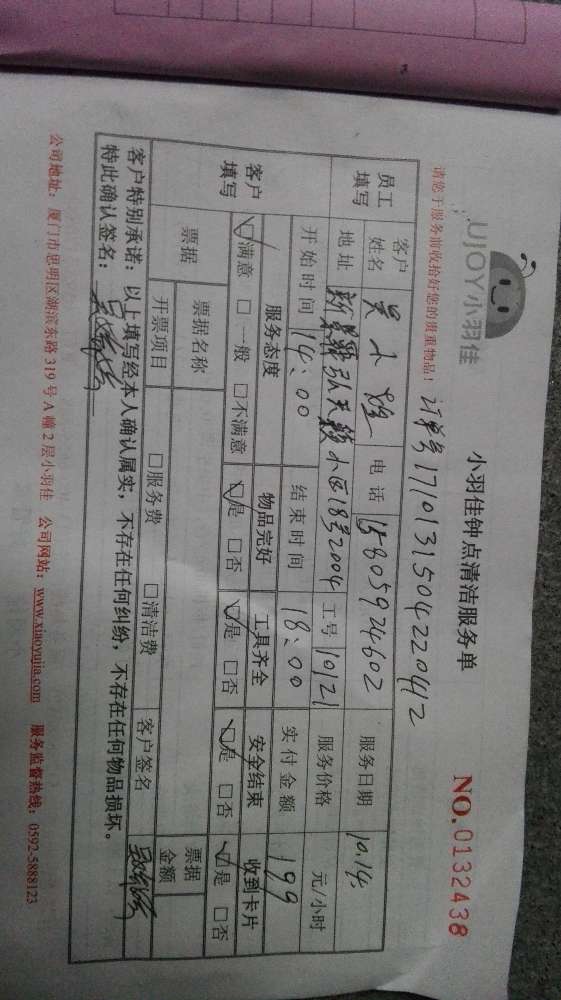 UJOY小羽佳
小羽佳钟点清洁服务单
NO.0132438
请您于服务前收拾好您的贵重物品！ 订单号1710131504220412
员工填写 客户姓名 吴小 电话 15805924602 服务日期 10.14.
地址 新景 弘天 小区18号2004 工号 10121 服务价格 元/小时
客户填写 开始时间 14:00 结束时间 18:00 实付金额 199
服务态度 物品完好 工具齐全 安全结束 收到卡片
☑满意 □一般 □不满意 ☑是 □否 ☑是 □否 ☑是 □否 ☑是 □否
票据 票据名称 票据金额
开票项目 □服务费 □清洁费 客户签名
客户特别承诺：以上填写经本人确认属实，不存在任何纠纷，不存在任何物品损坏。
特此确认签名：
公司地址：厦门市思明区湖滨东路319号A幢2层小羽佳 公司网站：www.xiaoyujia.com 服务监督热线：0592-5888123